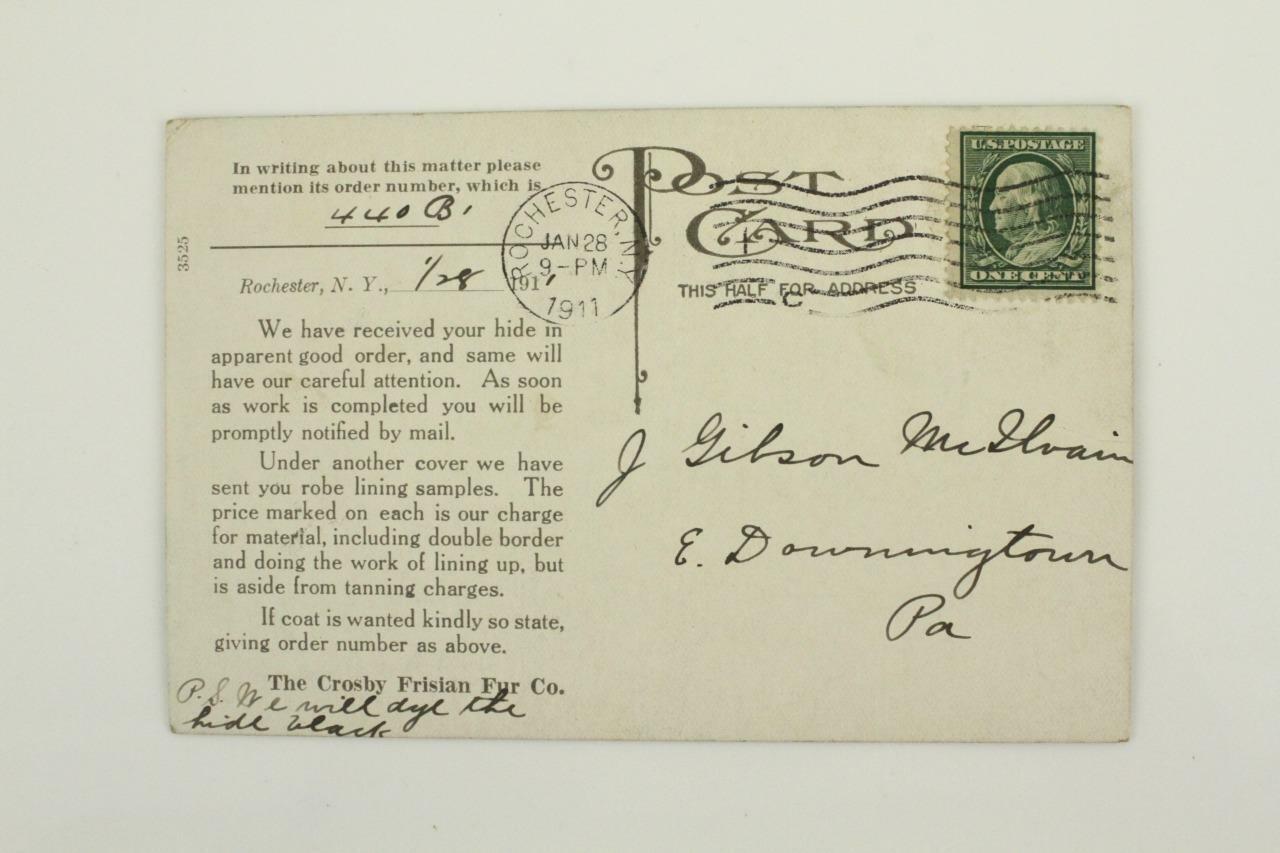 In writing about this matter please
mention its order number, which is
440 B.
3525
Rochester, N. Y., 1/28 1911
We have received your hide in
apparent good order, and same will
have our careful attention. As soon
as work is completed you will be
promptly notified by mail.
Under another cover we have
sent you robe lining samples. The
price marked on each is our charge
for material, including double border
and doing the work of lining up, but
is aside from tanning charges.
If coat is wanted kindly so state,
giving order number as above.
The Crosby Frisian Fur Co.
P.S. We will dye the
hide black
ROCHESTER, N.Y.
JAN 28
9-PM
1911
POST
CARD
THIS HALF FOR ADDRESS
C
U.S. POSTAGE
ONE CENT
J Gibson McIlvain
E. Downingtown
Pa